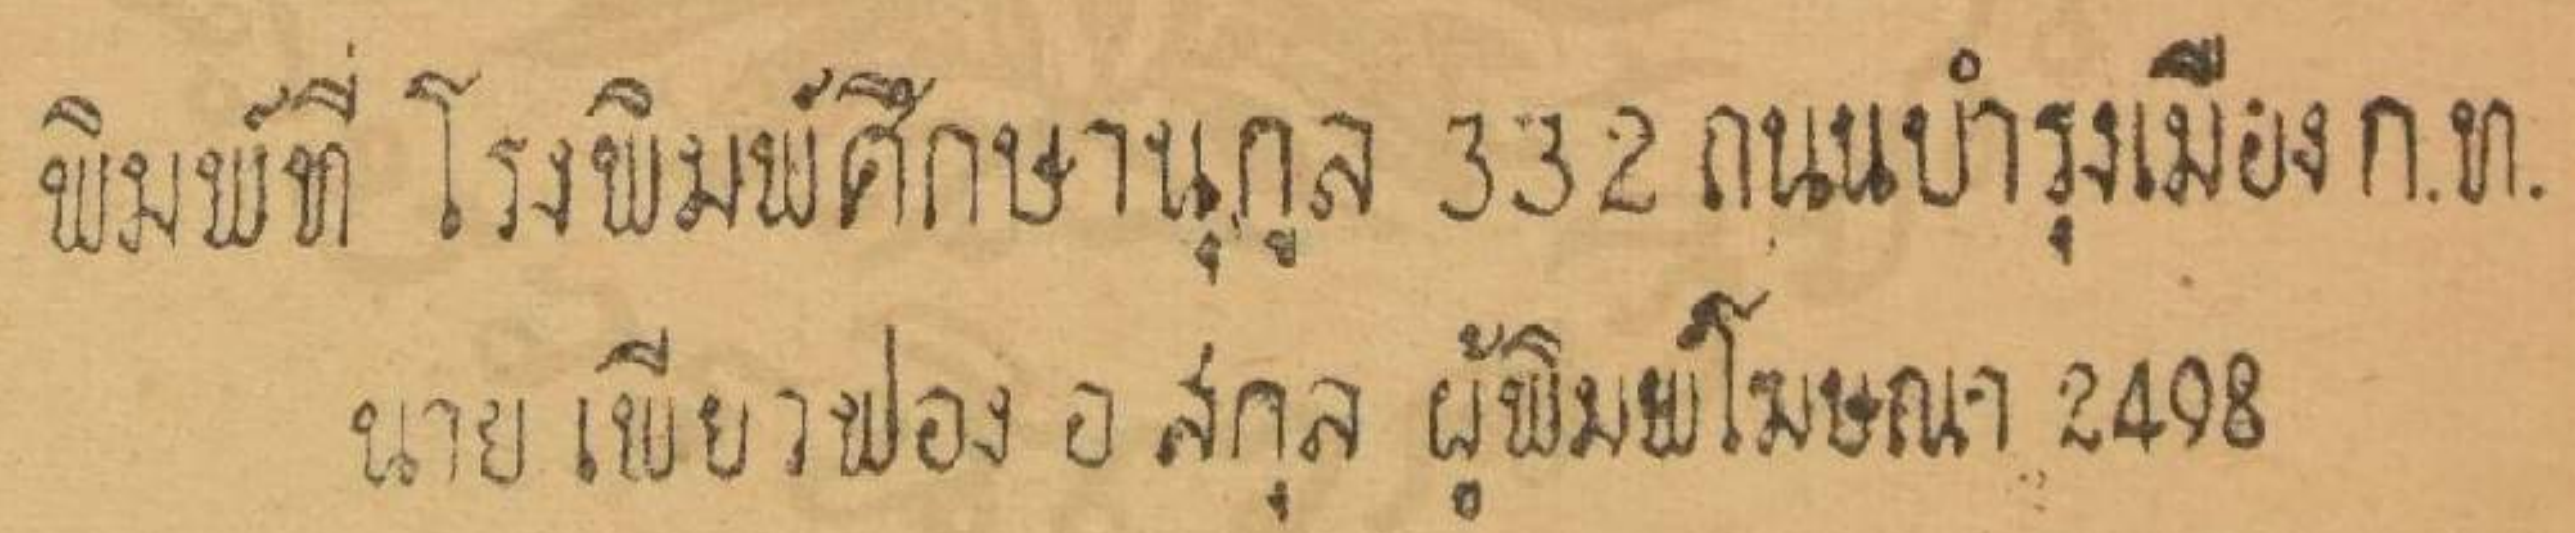 พิมพ์ที่ โรงพิมพ์ศึกษานุกูล 332 ถนนบำรุงเมือง ก.ท.
นาย เพียวฟอง อ ส่กุล ผู้พิมพ์โฆษณา 2498